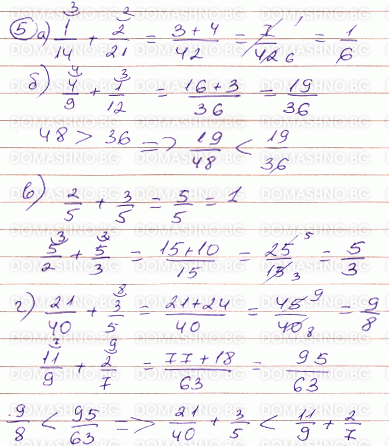 5 а) 1/14 (3) + 2/21 (2) = (3+4)/42 = 7/42 (1, 6) = 1/6
б) 4/9 (4) + 1/12 (3) = (16+3)/36 = 19/36
48 > 36 => 19/48 < 19/36
в) 2/5 + 3/5 = 5/5 = 1
5/2 (3) + 5/3 (2) = (15+10)/15 = 25/15 (5, 3) = 5/3
г) 21/40 + 3/5 (8) = (21+24)/40 = 45/40 (9, 8) = 9/8
11/9 (7) + 2/7 (9) = (77+18)/63 = 95/63
9/8 < 95/63 => 21/40 + 3/5 < 11/9 + 2/7
DOMASHNO.BG